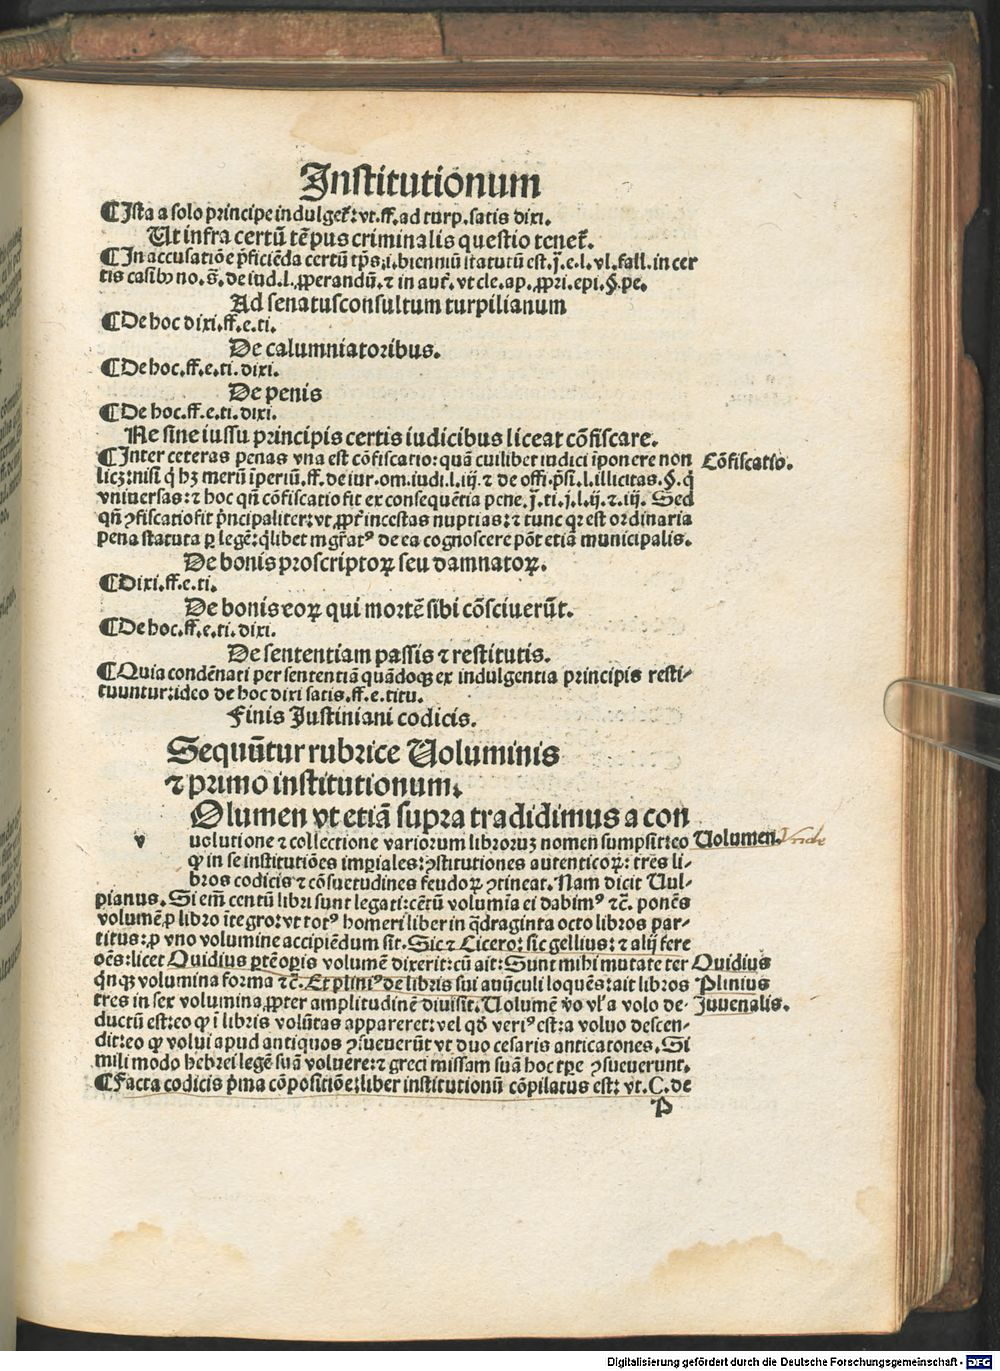 Institutionum
¶Ista a solo principe indulget᷑: vt.ff.ad turp.satis dixi.
Ut infra certū tēpus criminalis questio tenet᷑.
¶In accusatiōe ꝑficiēda certū tꝑs.i.bienniū statutū est.j̄.e.l.vl.fall.in cer
tis casibꝰ no.s̄.de iud.l.ꝓperandū.⁊ in aut᷑.vt cle.ap.ꝓpri.epi.§.pe.
Ad senatusconsultum turpilianum
¶De hoc dixi.ff.e.ti.
De calumniatoribus.
¶De hoc.ff.e.ti.dixi.
De penis
¶De hoc.ff.e.ti.dixi.
Ne sine iussu principis certis iudicibus liceat cōfiscare.
¶Inter ceteras penas vna est cōfiscatio: quā cuilibet iudici īponere non
Cōfiscatio.
licꝫ: nisi q̇ hꝫ merū īperiū.ff.de iur.om.iudi.l.iij.⁊ de offi.p̄si.l.illicitas.§.q̇
vniuersas: ⁊ hoc qn̄ cōfiscatio fit ex consequētia pene.j̄.ti.j.l.ij.⁊.iij. Sed
qn̄ ꝯfiscatio fit p̄ncipaliter: vt ꝓpt᷑ incestas nuptias: ⁊ tunc qꝛ est ordinaria
pena statuta ꝑ legē: q̇libet mgr̄atꝰ de ea cognoscere pōt etiā municipalis.
De bonis proscriptoꝝ seu damnatoꝝ.
¶Dixi.ff.e.ti.
De bonis eoꝝ qui mortē sibi cōsciuerūt.
¶De hoc.ff.e.ti.dixi.
De sententiam passis ⁊ restitutis.
¶Quia condēnati per sententiā quādoqꝫ ex indulgentia principis resti-
tuuntur: ideo de hoc dixi satis.ff.e.titu.
Finis Justiniani codicis.
Sequūtur rubrice Uoluminis
⁊ primo institutionum.
v
Olumen vt etiā supra tradidimus a con
uolutione ⁊ collectione variorum libroruꝫ nomen sumpsit: eo
Uolumen.
ꝙ in se institutiōes imꝑiales: ꝯstitutiones autenticoꝝ: tres li-
bros codicis ⁊ cōsuetudines feudoꝝ ꝯtineat. Nam dicit Uul-
pianus. Si em̄ centū libri sunt legati: cētū volumīa ei dabimꝰ ⁊c̄. ponēs
volumē ꝓ libro ītegro: vt totꝰ homeri liber in q̄draginta octo libros par-
titus: ꝓ vno volumine accipiēdum sit. Sic ⁊ Cicero: sic gellius: ⁊ alij fere
oēs: licet Ouidius ꝑte oꝑis volumē dixerit: cū ait: Sunt mihi mutate ter
Ouidius
q̇nqꝫ volumina forma ⁊c̄. Et pliniꝰ de libris sui auūculi loquēs: ait libros
Plinius
tres in sex volumina ꝓpter amplitudinē diuisit. Uolumē v̄o vl̓ a volo de-
Juuenalis.
ductū est: eo ꝙ i libris volūtas appareret: vel qd̓ veriꝰ est: a voluo descen-
dit: eo ꝙ volui apud antiquos ꝯsueuerūt vt duo cesaris anticatones. Si
mili modo hebrei legē suā voluere: ⁊ greci missam suā hoc tꝑe ꝯsueuerunt.
¶Facta codicis p̄ma cōpositiōe: liber institutionū cōpilatus est: vt.C.de
P
Digitalisierung gefördert durch die Deutsche Forschungsgemeinschaft - DFG